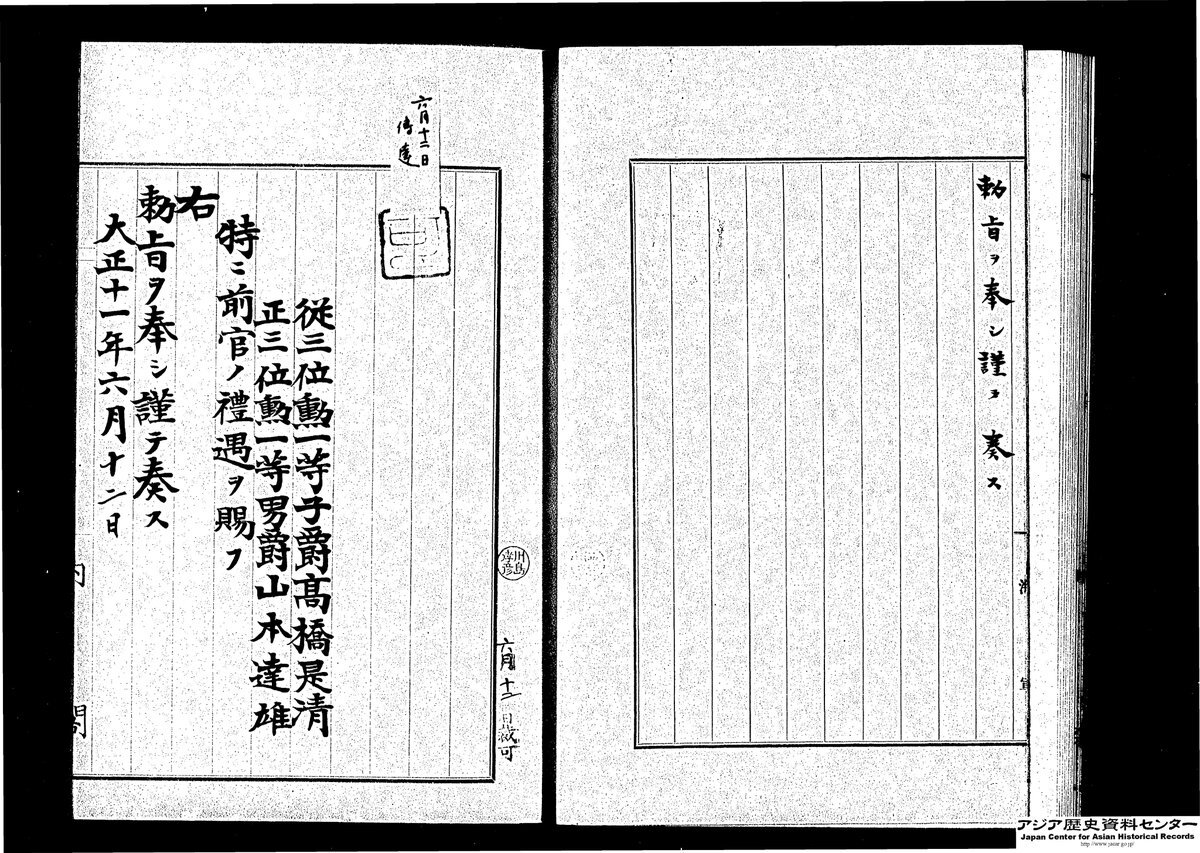 勅旨ヲ奉シ謹ヲ奏ス
海軍
六月十二日裁可
川島
六月十二日
傳達
從三位勳一等子爵髙橋是清
正三位勳一等男爵山本達雄
特ニ前官ノ禮遇ヲ賜フ
右
勅旨ヲ奉シ謹テ奏ス
大正十一年六月十二日
内閣
アジア歴史資料センター
Japan Center for Asian Historical Records
http://www.jacar.go.jp/